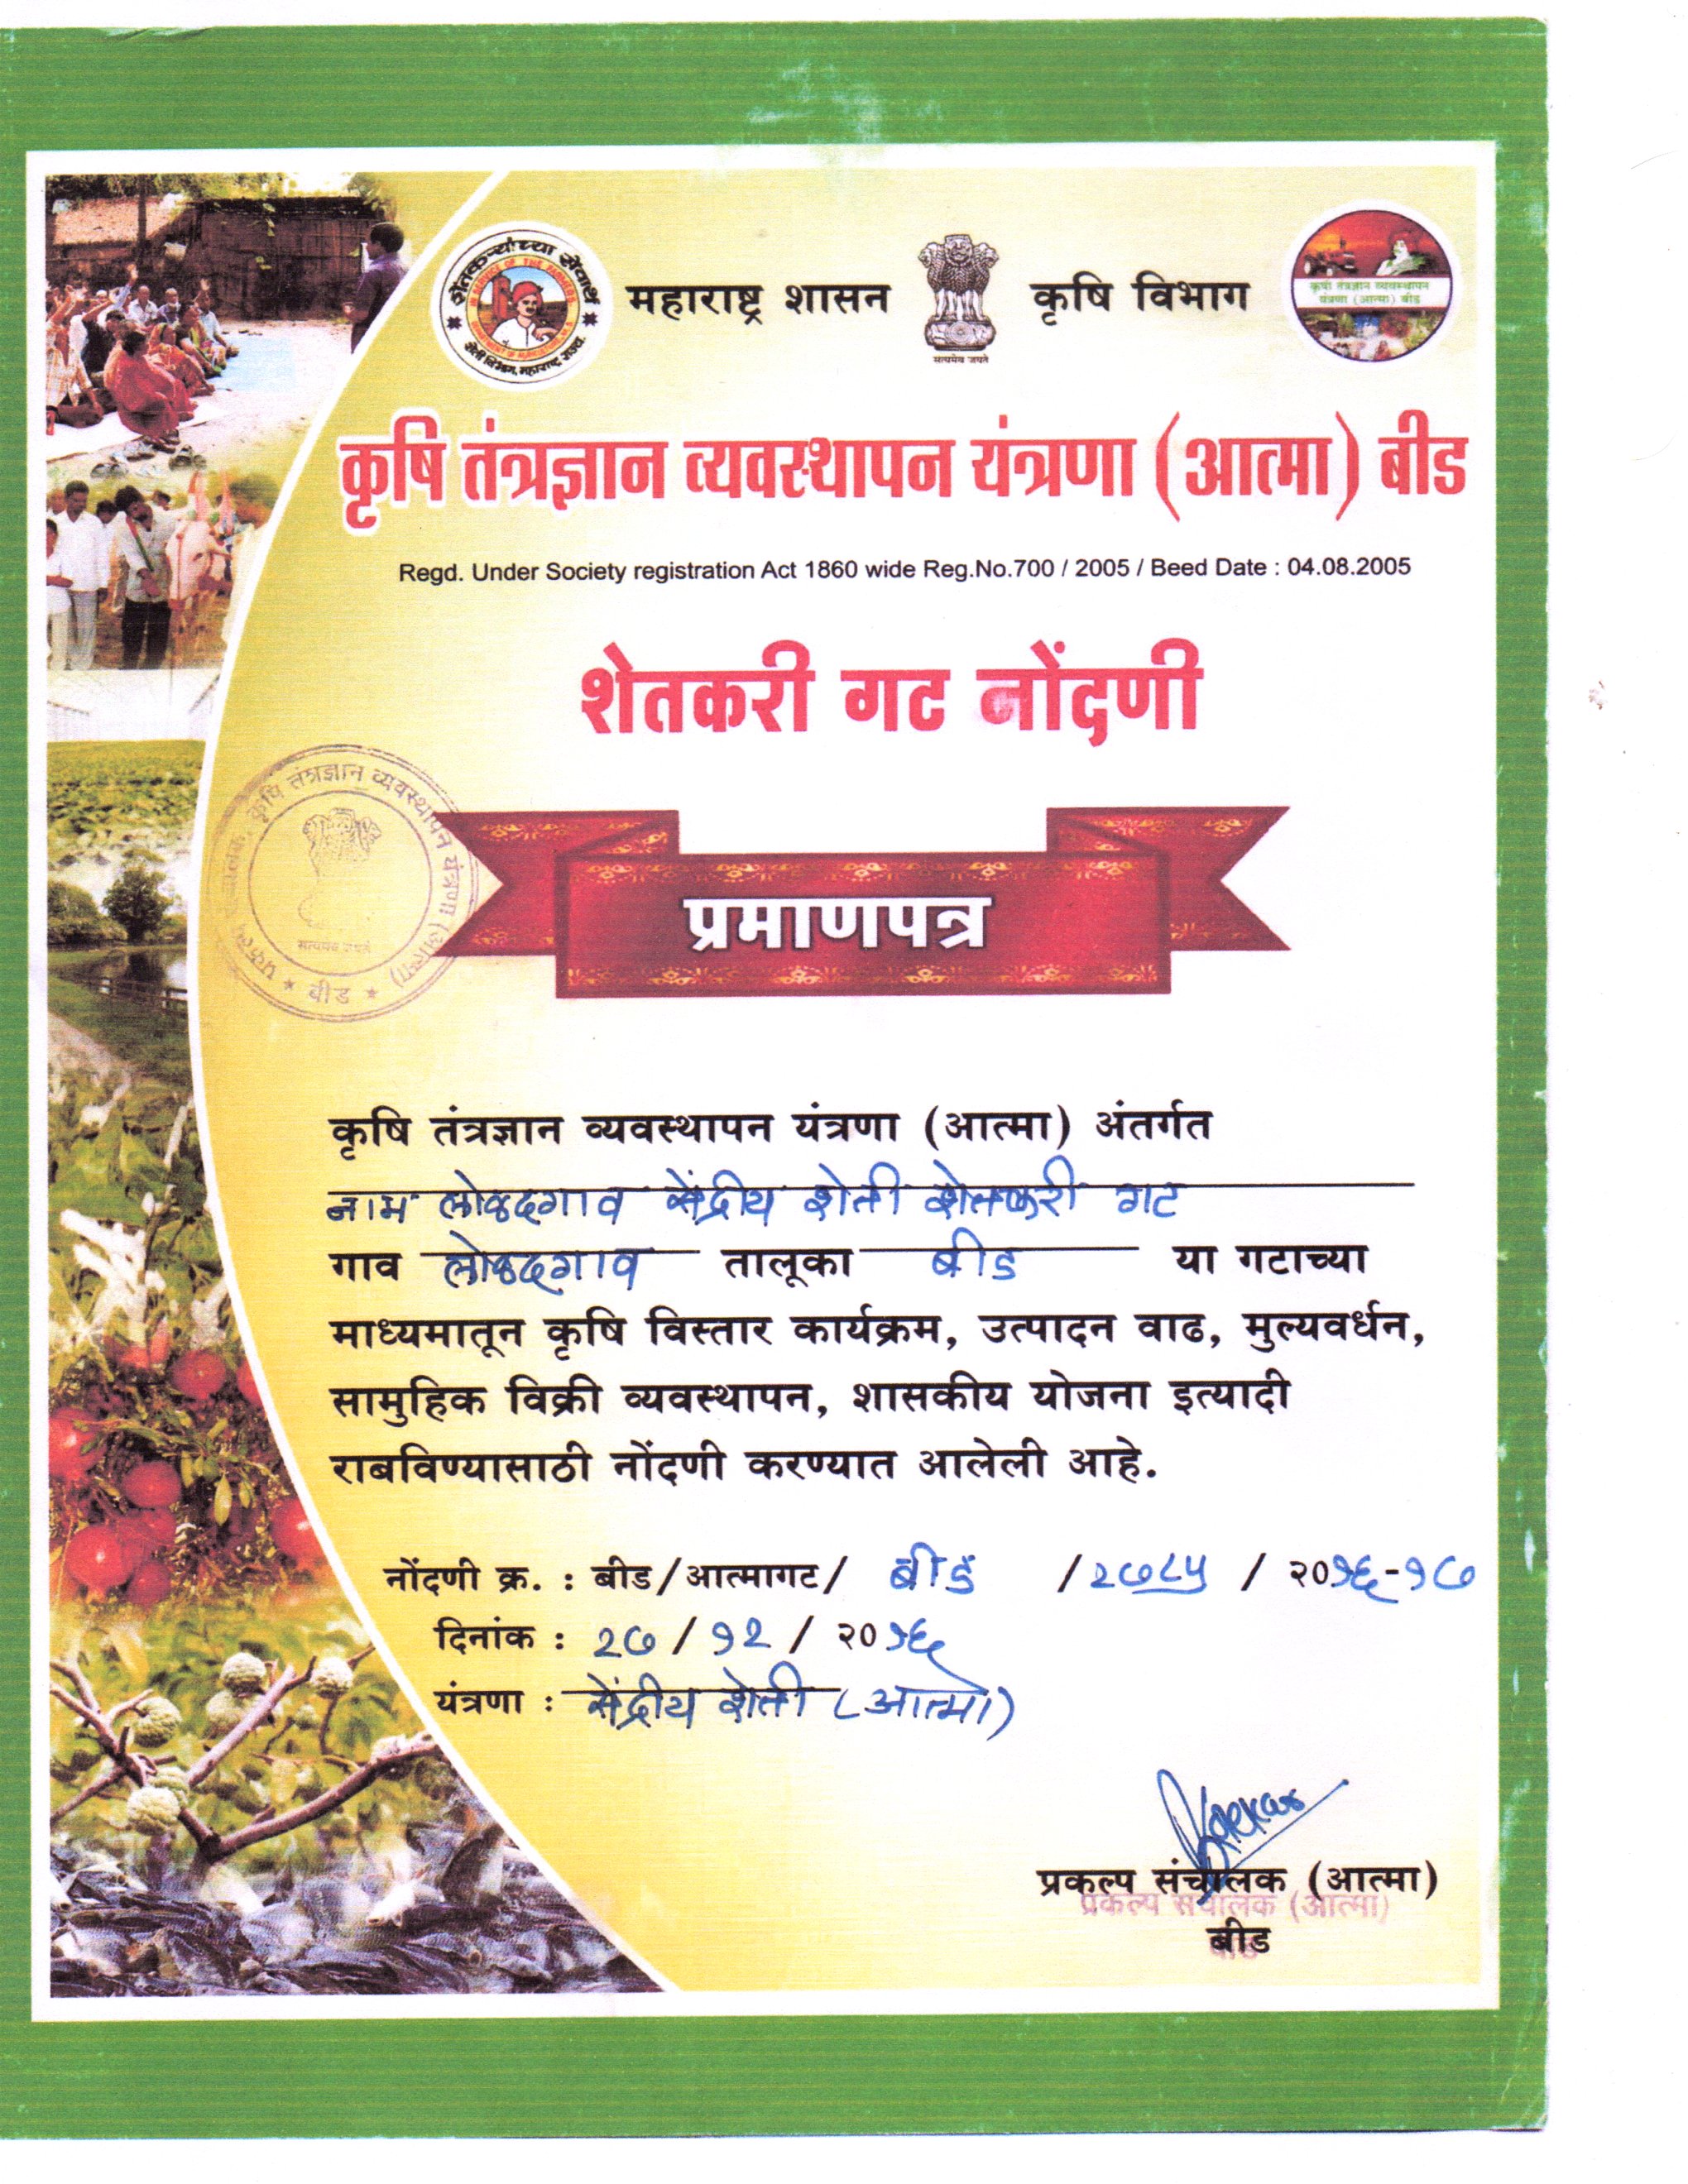 शेतकऱ्यांच्या सेवार्थ
IN SERVICE OF THE FARMERS
शेती विभाग, महाराष्ट्र राज्य.
महाराष्ट्र शासन
सत्यमेव जयते
कृषि विभाग
कृषी तंत्रज्ञान व्यवस्थापन
यंत्रणा (आत्मा) बीड
कृषि तंत्रज्ञान व्यवस्थापन यंत्रणा (आत्मा) बीड
Regd. Under Society registration Act 1860 wide Reg.No.700 / 2005 / Beed Date : 04.08.2005
शेतकरी गट नोंदणी
कृषि तंत्रज्ञान व्यवस्थापन यंत्रणा (आत्मा)
सत्यमेव जयते
★ बीड ★
प्रमाणपत्र
कृषि तंत्रज्ञान व्यवस्थापन यंत्रणा (आत्मा) अंतर्गत
नाम लोळदगाव सेंद्रीय शेती शेतकरी गट
गाव लोळदगाव तालूका बीड या गटाच्या
माध्यमातून कृषि विस्तार कार्यक्रम, उत्पादन वाढ, मुल्यवर्धन,
सामुहिक विक्री व्यवस्थापन, शासकीय योजना इत्यादी
राबविण्यासाठी नोंदणी करण्यात आलेली आहे.
नोंदणी क्र. : बीड/आत्मागट/ बीड /२७८५ / २०१६-१७
दिनांक : २७ / १२ / २०१६
यंत्रणा : सेंद्रीय शेती (आत्मा)
प्रकल्प संचालक (आत्मा)
प्रकल्प संचालक (आत्मा)
बीड
बीड